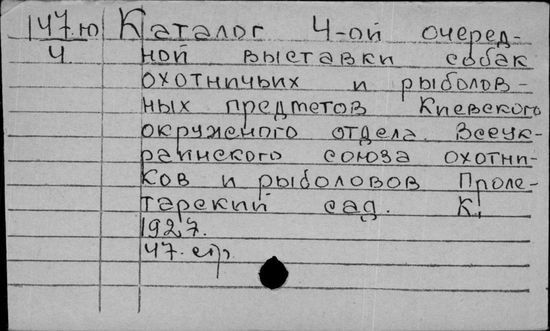 147.ю Каталог 4-ой очеред-
4. ной выставки собак
охотничьих и рыболов-
ных предметов Киевского
окружного отдела Всеук-
раинского союза охотни-
ков и рыболовов Проле-
тарский сад. К.,
1927.
47. стр.